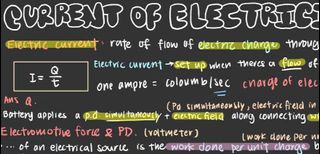 CURRENT OF ELECTRIC
Electric current: rate of flow of electric charge throug
I = Q/t
Electric current → set up when theres a flow of
one ampre = coloumb/sec charge of elec
Ans Q.
(Pd simultaneously, electric field in
Battery applies a p.d simultaneously + electric field along connecting
Electromotive force & PD. (voltmeter)
(work done per
... of an electrical source is the work done per unit charge b